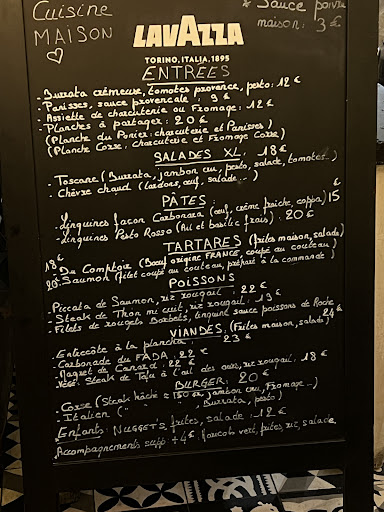 Cuisine
MAISON
* Sauce poivre
maison: 3 €
LAVAZZA
TORINO, ITALIA, 1895
ENTREES
- Burrata crémeuse, tomates provence, pesto: 12 €
- Panisses, sauce provençale: 9 €
- Assiette de charcuterie ou Fromage: 12 €
- Planches à partager: 20 €
(Planche du Panier: charcuterie et Panisses)
(Planche Corse: Charcuterie et Fromage Corse)
SALADES XL: 18 €
- Toscane (Burrata, jambon cru, pesto, salade, tomates...)
- Chèvre chaud (lardons, œuf, salade...)
PÂTES:
- Linguines façon Carbonara (œuf, crème fraiche, coppa) 15 €
- Linguines Pesto Rosso (Ail et basilic frais): 20 €
TARTARES (frites maison, salade)
18 € Du Comptoir (Bœuf origine FRANCE, coupé au couteau)
20 - Saumon (filet coupé au couteau, préparé à la commande)
POISSONS
- Piccata de Saumon, riz rougail: 22 €
- Steak de Thon mi cuit, riz rougail: 19 €
- Filets de rougets Barbets, linguine sauce poissons de Roche 24 €
VIANDES: (Frites maison, salade)
- Entrecôte à la plancha: 23 €
- Carbonade du FADA: 22 €
- Magret de Canard: 22 €
steak de Tofu à l'ail des ours, riz rougail: 18 €
BURGER: 20 €
- Corse (Steak hâché ≈ 150 gr, jambon cru, Fromage...)
- Italien (" " , Burrata, pesto)
Enfants: NUGGETS, frites, salade: 12 €
Accompagnements supp: +4 €: Haricots vert, frites, riz, salade